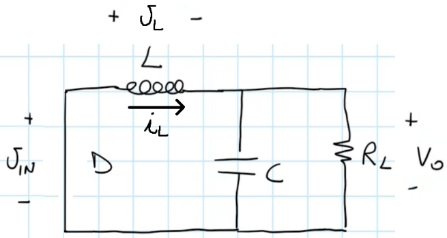 + υL -
L
iL
+
υIN
-
D
C
RL
+
Vo
-